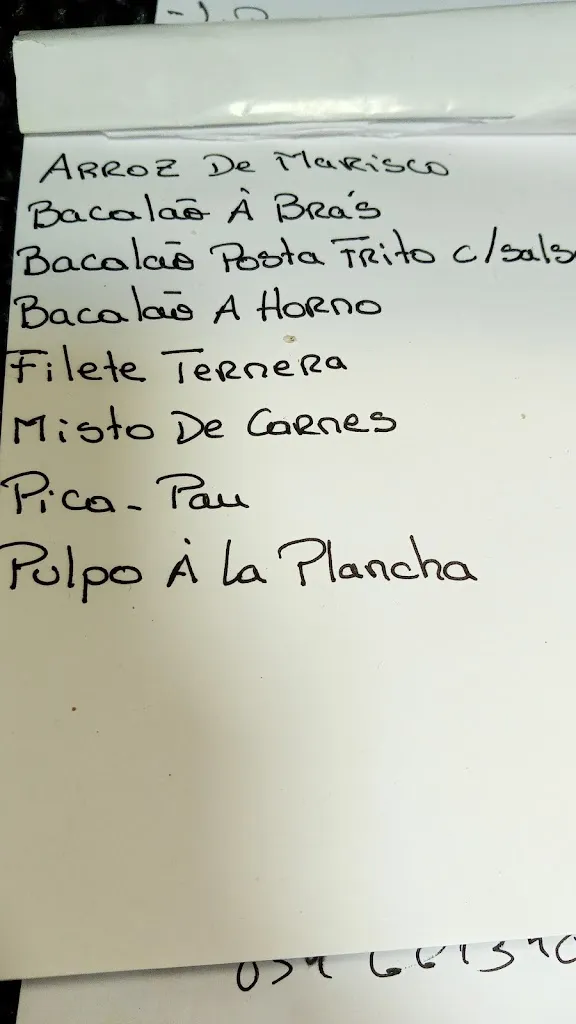 Arroz De Marisco
Bacalaõ À Brás
Bacalaõ Posta Frito c/sals
Bacalaõ A Horno
Filete Ternera
Misto De Carnes
Pica-Pau
Pulpo À La Plancha